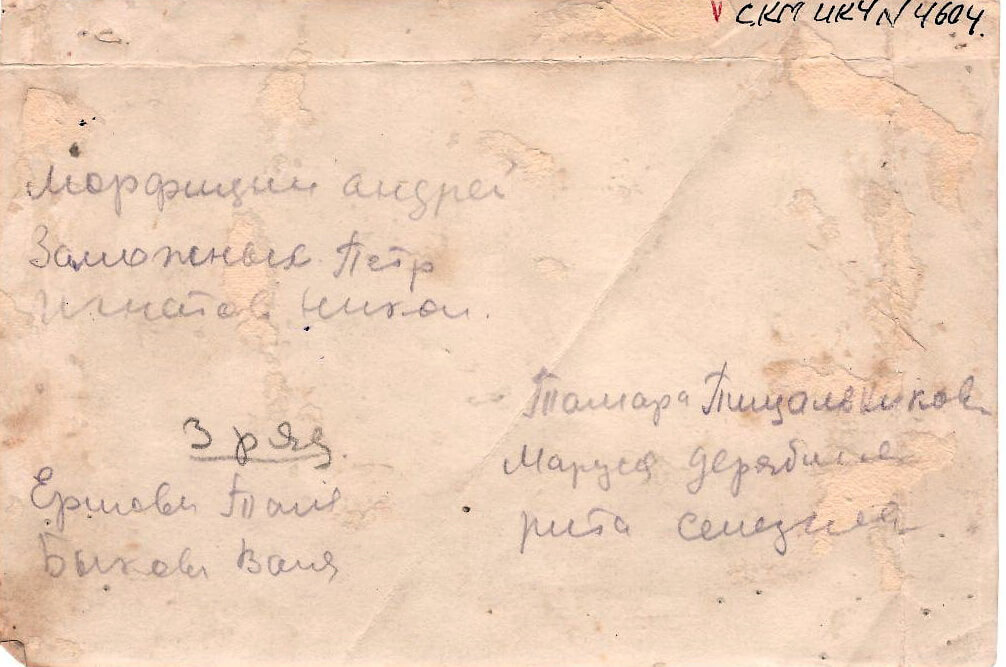 V СКМ ИКЧ N 4604.
Морфицин андрей
Заможных Петр
Игнатов Никол.
3 ряд
Ершова Таля
Быкова Валя
Тамара Пищальникова
Маруся дерябина
рита